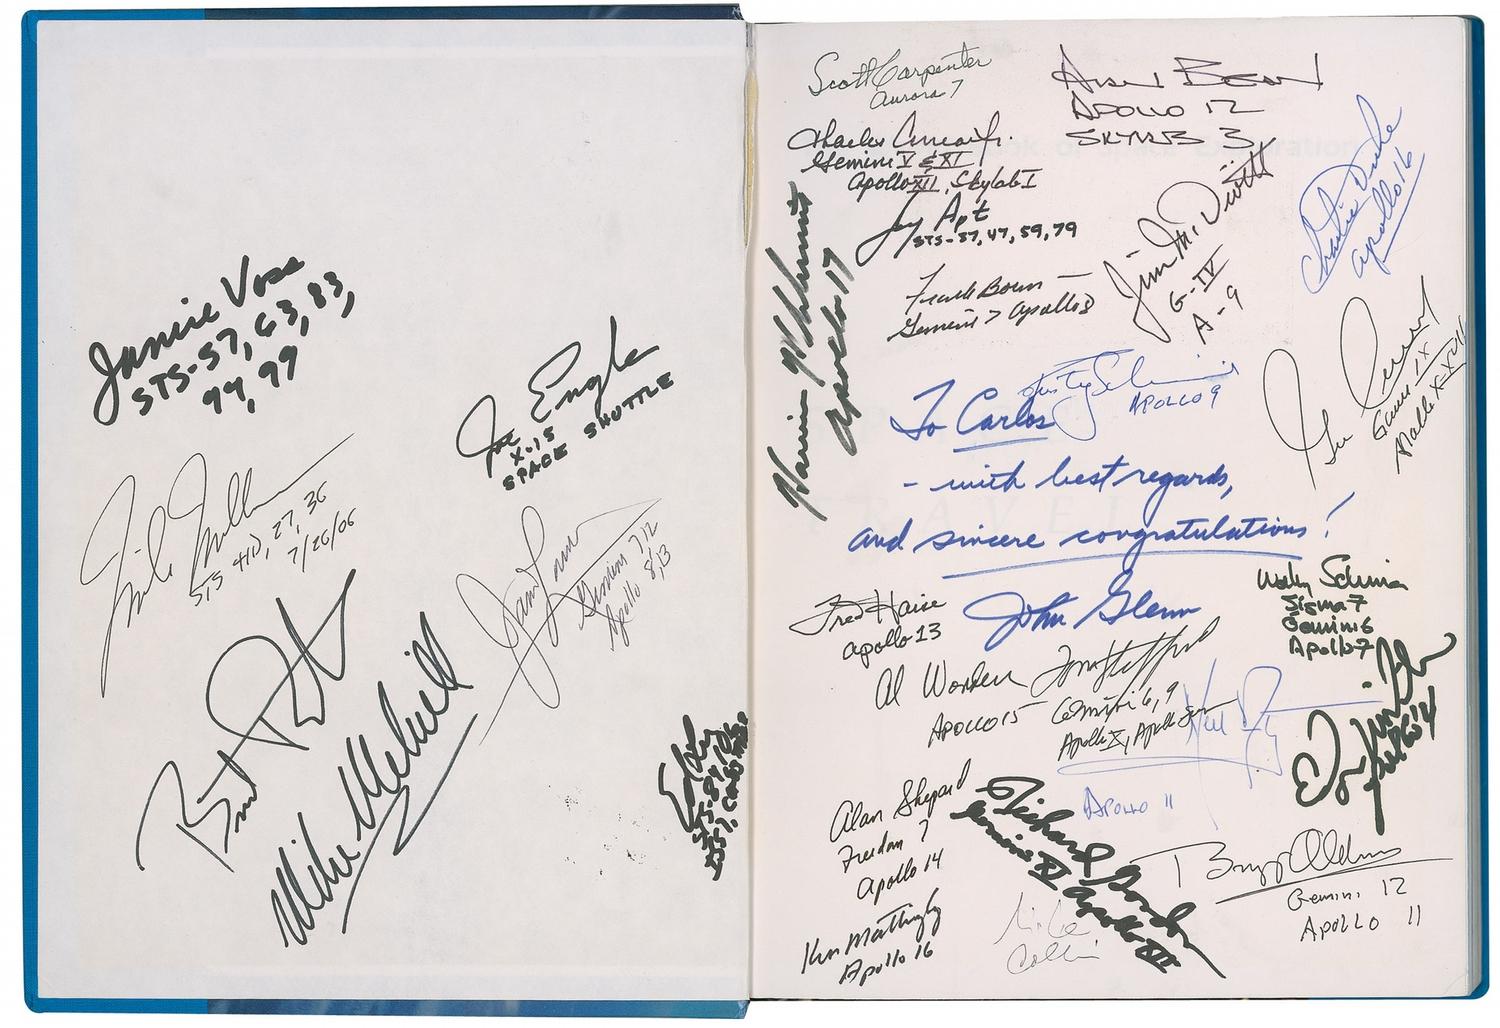 Janice Voss
STS-57, 63, 83,
94, 99
Joe Engle
X-15
SPACE SHUTTLE
Mike Mullane
STS 41D, 27, 36
7/26/06
James Lovell
Gemini 7,12
Apollo 8,13
Mike Melvill
Scott Carpenter
Aurora 7
Alan Bean
APOLLO 12
SKYLAB 3
Charles Conrad Jr.
Gemini V & XI
Apollo XII, Skylab I
Jay Apt
STS-37, 47, 59, 79
Charlie Duke
Apollo 16
Jim McDivitt
G-IV
A-9
Harrison H Schmitt
Apollo 17
Frank Borman
Gemini 7 Apollo 8
Rusty Schweickart
APOLLO 9
Gene Cernan
Gemini IX
Apollo X-XVII
To Carlos
- with best regards,
and sincere congratulations!
John Glenn
TRAVEL
Fred Haise
Apollo 13
Wally Schirra
Sigma 7
Gemini 6
Apollo 7
Al Worden
APOLLO 15
Tom Stafford
Gemini 6, 9
Apollo X, Apollo Soyuz
Neil Armstrong
APOLLO 11
Edgar Mitchell
Apollo 14
Alan Shepard
Freedom 7
Apollo 14
Richard Gordon
Gemini XI Apollo XII
Buzz Aldrin
Gemini 12
APOLLO 11
Ken Mattingly
Apollo 16
Mike
Collins